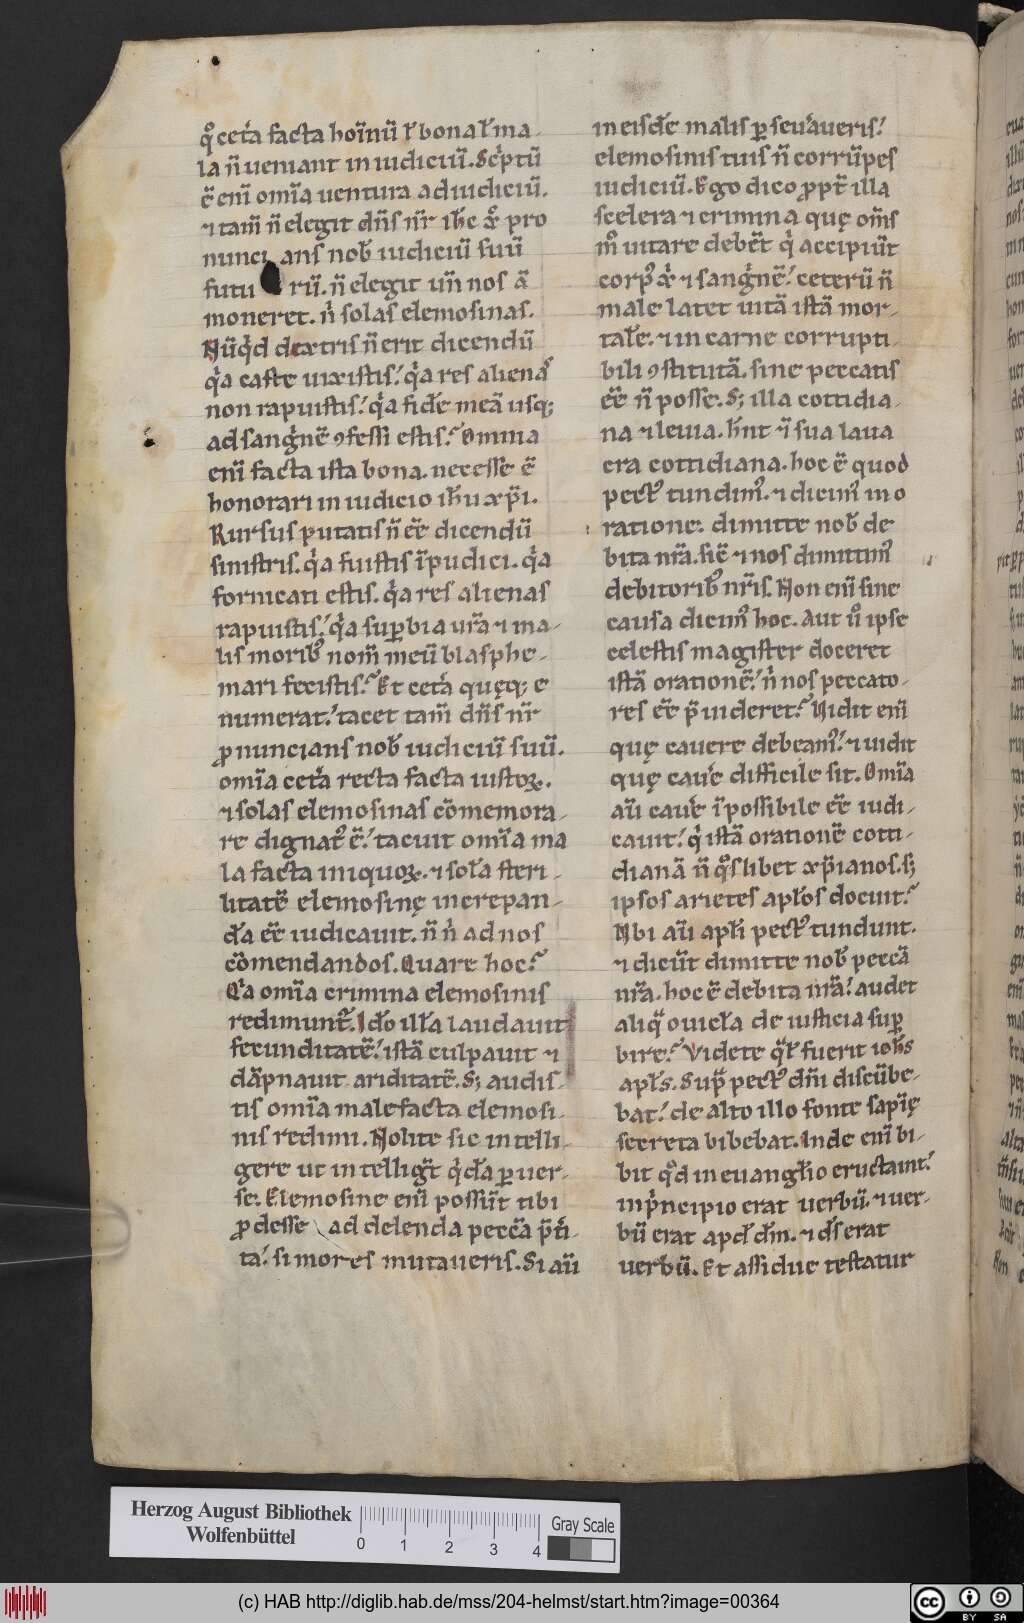 qͦ cet͛a facta hoı̅nu̅ ł bona ł ma
la n̅ ueniant in iudiciu̅. Scͥptu̅
e̅ eni̅ omı̅a uentura ad iudiciu̅.
⁊ tam̅ n̅ elegit dn̅s nr̅ ih̅c xp̅c pro
nunci ans nob̅ iudiciu̅ suu̅
futu ru̅. n̅ elegit un̅ nos a̅
moneret. nͥ solas elemosinas.
Nu̅qͥd dextris n̅ erit dicendu̅
qͥa caste uixistis? qͥa res alienas
non rapuistis? qͥa fide̅ mea̅ usq;
ad sangͥne̅ ꝯfessi estis? Omnia
eni̅ facta ista bona. necesse e̅
honorari in iudicio ih̅u xp̅i.
Rursus putatis n̅ ee̅ dicendu̅
sinistris. qͥa fuistis ı̅pudici. qͥa
fornicati estis. qͥa res alienas
rapuistis? qͥa suꝑbia ur̅a ⁊ ma-
lis morib; nom̅ meu̅ blasphe-
mari fecistis? Et cet͛a quęq; e
numerat? tacet tam̅ dn̅s nr̅
ꝓnuncians nob̅ iudiciu̅ suu̅.
omı̅a cet͛a recta facta iustoꝝ.
⁊ solas elemosinas co̅memora-
re dignatᷣ e̅? tacuit omı̅a ma
la facta iniquoꝝ. ⁊ soła steri-
litate̅ elemosinę increpan-
da̅ ee̅ iudicauit. n̅ nͥ ad nos
co̅mendandos. Quare hoc?
Qͥa omı̅a crimina elemosinis
redimunt᷑. Ido̅ illa̅ laudauit
fecunditate̅? ista̅ culpauit ⁊
da̅pnauit ariditate̅. S; audis-
tis omı̅a malefacta elemosi-
nis redimi. Nolite sic intelli-
gere ut intelligit᷑ qͥda̅ ꝑuer-
se. Elemosine eni̅ possu̅t tibi
ꝓdesse ad delenda pecca̅ p̅t͛i-
ta. si mores mutaueris. Si au̅
in eisde̅ malis ꝑseu͛aueris?
elemosinis tuis n̅ corru̅pes
iudiciu̅. Ego dico ꝓpt͛ illa
scelera ⁊ crimina quę om̅s
mͦ uitare debe̅t qͥ accipiu̅t
corpꝰ xp̅i ⁊ sangͥne̅? ceteru̅ n̅
male latet uita̅ ista̅ mor-
tale̅. ⁊ in carne corrupti-
bili ꝯstituta̅. sine peccatis
ee̅ n̅ posse. S; illa cottidia-
na ⁊ leuia. hn̅t ⁊ı̅ sua laua
cra cottidiana. hoc e̅ quod
pectꝰ tundimꝰ. ⁊ dicimꝰ in o
ratione. dimitte nob̅ de
bita nr̅a. sic̅ ⁊ nos dimittimꝰ
debitorib; nr̅is. Non eni̅ sine
causa dicimꝰ hoc. Aut uͦ ipse
celestis magister doceret
ista̅ oratione̅? nͥ nos peccato-
res ee̅ p̅uideret? Uidit eni̅
quę cauere debeamꝰ? ⁊ uidit
quę cau͛e difficile sit. Omı̅a
au̅ cau͛e ı̅possibile ee̅ iudi-
cauit? qͥ ista̅ oratione̅ cotti-
diana̅ n̅ qͦslibet xp̅ianos. s;
ipsos arietes apłos docuit?
Ubi au̅ apłi pectꝰ tundunt.
⁊ dicu̅t dimitte nob̅ pecca̅
nr̅a. hoc e̅ debita nr̅a? audet
aliqͣ ouicła de iusticia suꝑ
bire? Videte qͣł fuerit ioh̅s
apłs. Supͣ pectꝰ dn̅i discu̅be-
bat? de alto illo fonte sapı̅ę
secreta bibebat. Inde eni̅ bi-
bit qͦd in euangłio eructauit?
inpͥncipio erat uerbu̅. ⁊ uer-
bu̅ erat apd̅ dm̅. ⁊ ds̅ erat
uerbu̅. Et assidue testatur
Herzog August Bibliothek
Wolfenbüttel
0 1 2 3 4
Gray Scale
(c) HAB http://diglib.hab.de/mss/204-helmst/start.htm?image=00364
cc BY SA